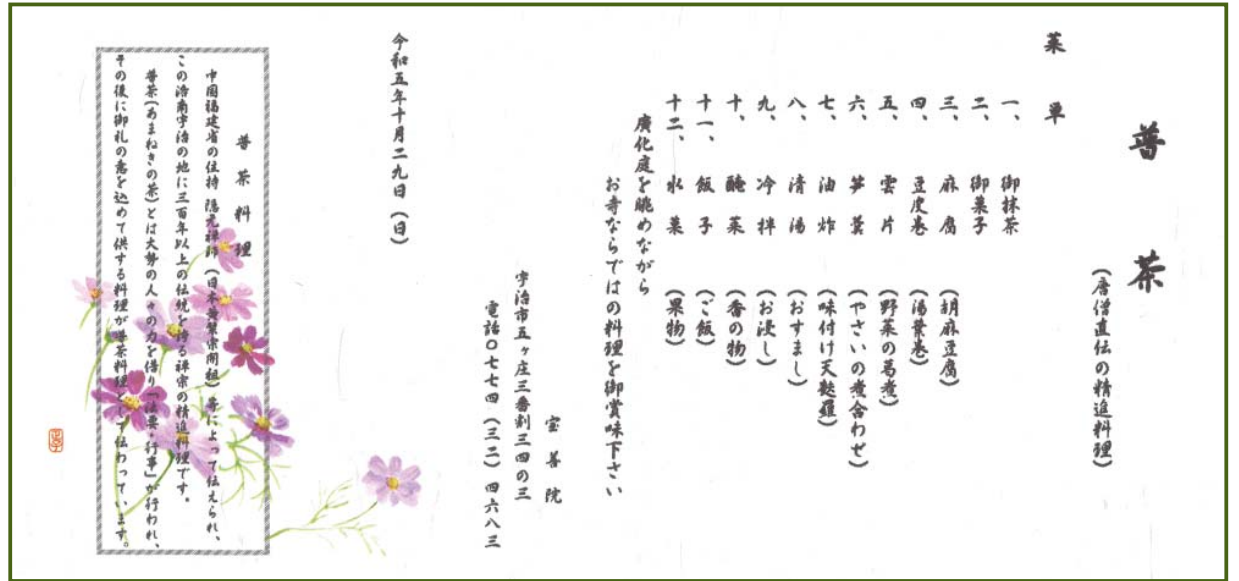 普茶
(唐僧直伝の精進料理)
菜単
一、御抹茶
二、御菓子
三、麻腐(胡麻豆腐)
四、豆皮巻(湯葉巻)
五、雲片(野菜の葛煮)
六、笋羹(やさいの煮合わせ)
七、油炸(味付け天麩羅)
八、清湯(おすまし)
九、冷拌(お浸し)
十、醃菜(香の物)
十一、飯子(ご飯)
十二、水菓(果物)
廣化庭を眺めながら
お寺ならではの料理を御賞味下さい
宝善院
宇治市五ヶ庄三番割三四の三
電話〇七七四(三二)四六八三
令和五年十月二九日(日)
普茶料理
中国福建省の住持 隠元禅師(日本黄檗宗開祖)等によって伝えられ、
この洛南宇治の地に三百年以上の伝統を持る禅宗の精進料理です。
普茶(あまねきの茶)とは大勢の人々の力を借り「法要・行事」が行われ、
その後に御礼の意を込めて供する料理が普茶料理として伝わっています。